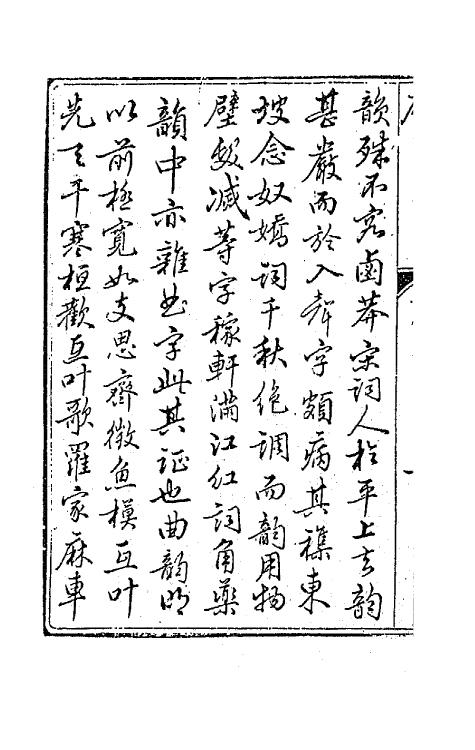 韻殊不容鹵莽宋詞人於平上去韵
甚嚴而於入聲字頗病其襍東
坡念奴嬌詞千秋絶調而韵用物
壁髮滅等字稼軒滿江紅詞角藥
韻中亦雜出字此其証也曲韵明
以前極寬如支思齊微魚模互叶
先天干寒桓歡互叶歌羅家麻車